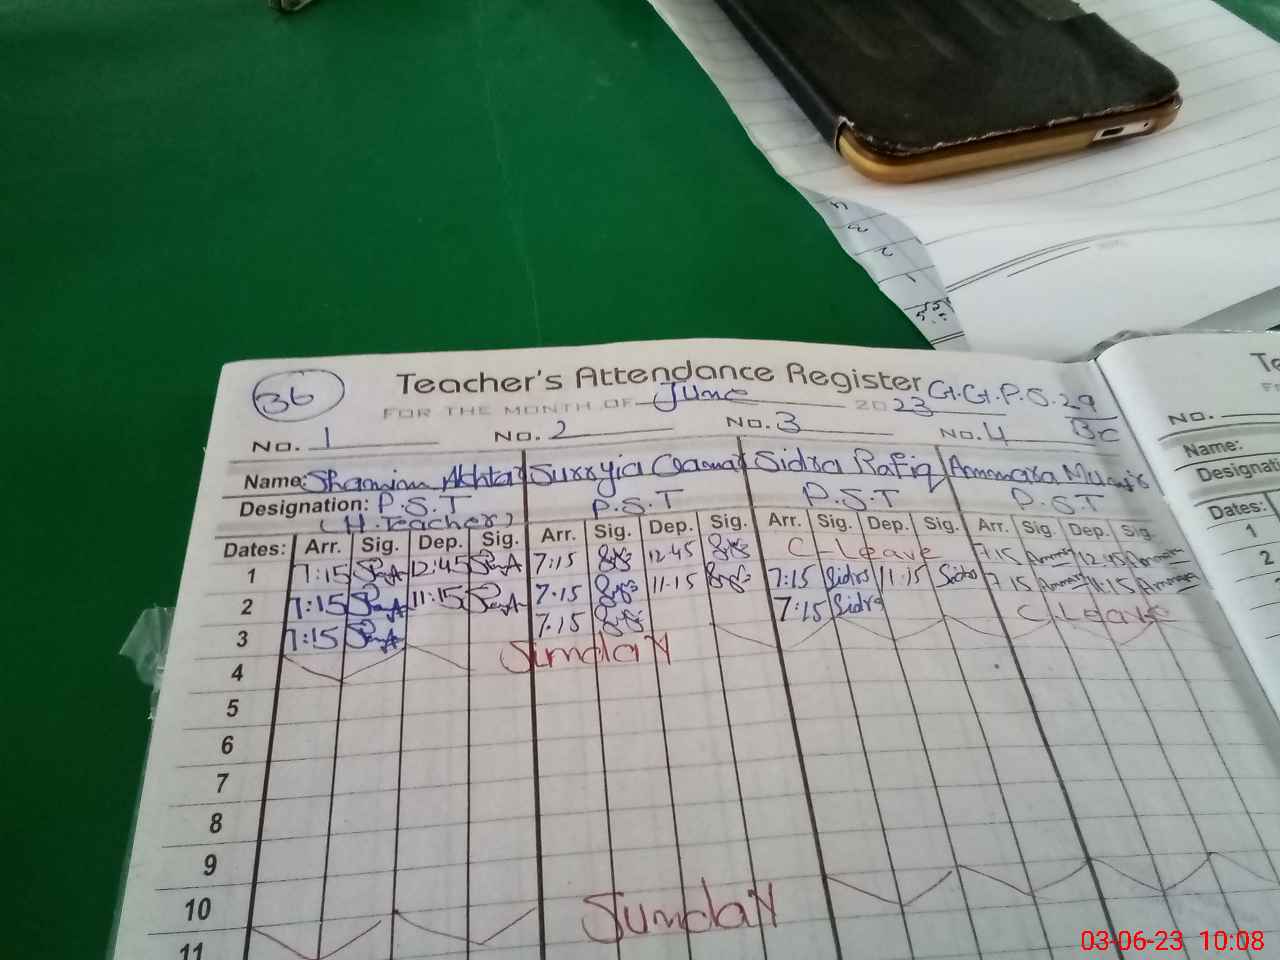 36
Teacher's Attendance Register G.G.P.S. 29
FOR THE MONTH OF June 2023 BC
No. 1 No. 2 No. 3 No. 4
Name: Shamim Akhtar Surryia Sidra Rafiq Ammara
Designation: P.S.T P.S.T P.S.T P.S.T
(H.Teacher)
Dates: Arr. Sig. Dep. Sig. Arr. Sig. Dep. Sig. Arr. Sig. Dep. Sig. Arr. Sig. Dep. Sig.
1 7:15 12:45 7:15 12:45 C-Leave 7:15 12:45
2 7:15 11:15 7:15 11:15 7:15 Sidra 11:15 Sidra 7:15 11:15
3 7:15 7:15 7:15 Sidra C.Leave
4 Sunday
5
6
7
8
9
10
11 Sunday
No.
Name:
Dates:
1
2
03-06-23 10:08